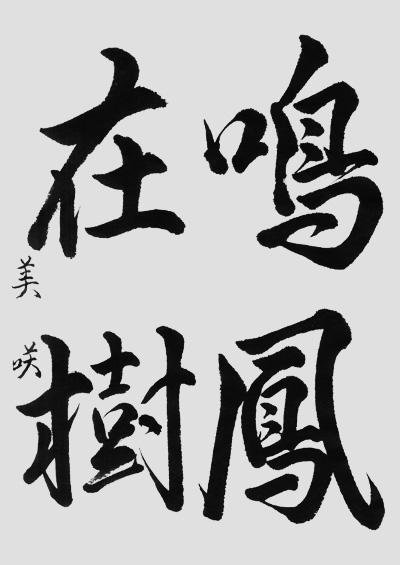 鳴鳳
在樹
美咲